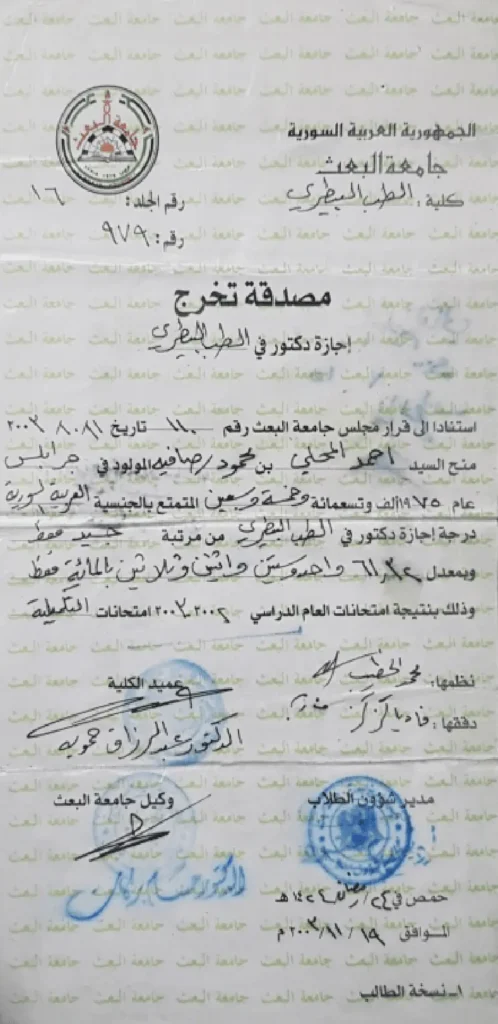 الجمهورية العربية السورية
جامعة البعث
كلية: الطب البيطري
رقم المجلد: ١٦
رقم: ٩٧٩
مصدقة تخرج
إجازة دكتور في الطب البيطري
استنادا الى قرار مجلس جامعة البعث رقم تاريخ ٢٠٠٣
منح السيد احمد المحلي بن محمود / صافيه المولود في جرابلس
عام ١٩٧٥ ألف وتسعمائة وخمسة وسبعين المتمتع بالجنسية العربية السورية
درجة إجازة دكتور في الطب البيطري من مرتبة جيد فقط
وبمعدل ٦١,٣٢ واحد وستين واثنين وثلاثين بالمائة فقط
وذلك بنتيجة امتحانات العام الدراسي ٢٠٠٢-٢٠٠٣ امتحانات التكميلية
نظمها: محمد الخطيب
دققها: فاديا
عميد الكلية
الدكتور عبد الرزاق حمويه
مدير شؤون الطلاب
وكيل جامعة البعث
الدكتور
حمص في ٢٤/رمضان/١٤٢٤ هـ
الموافق ١٩/١١/٢٠٠٣ م
١ـ نسخة الطالب